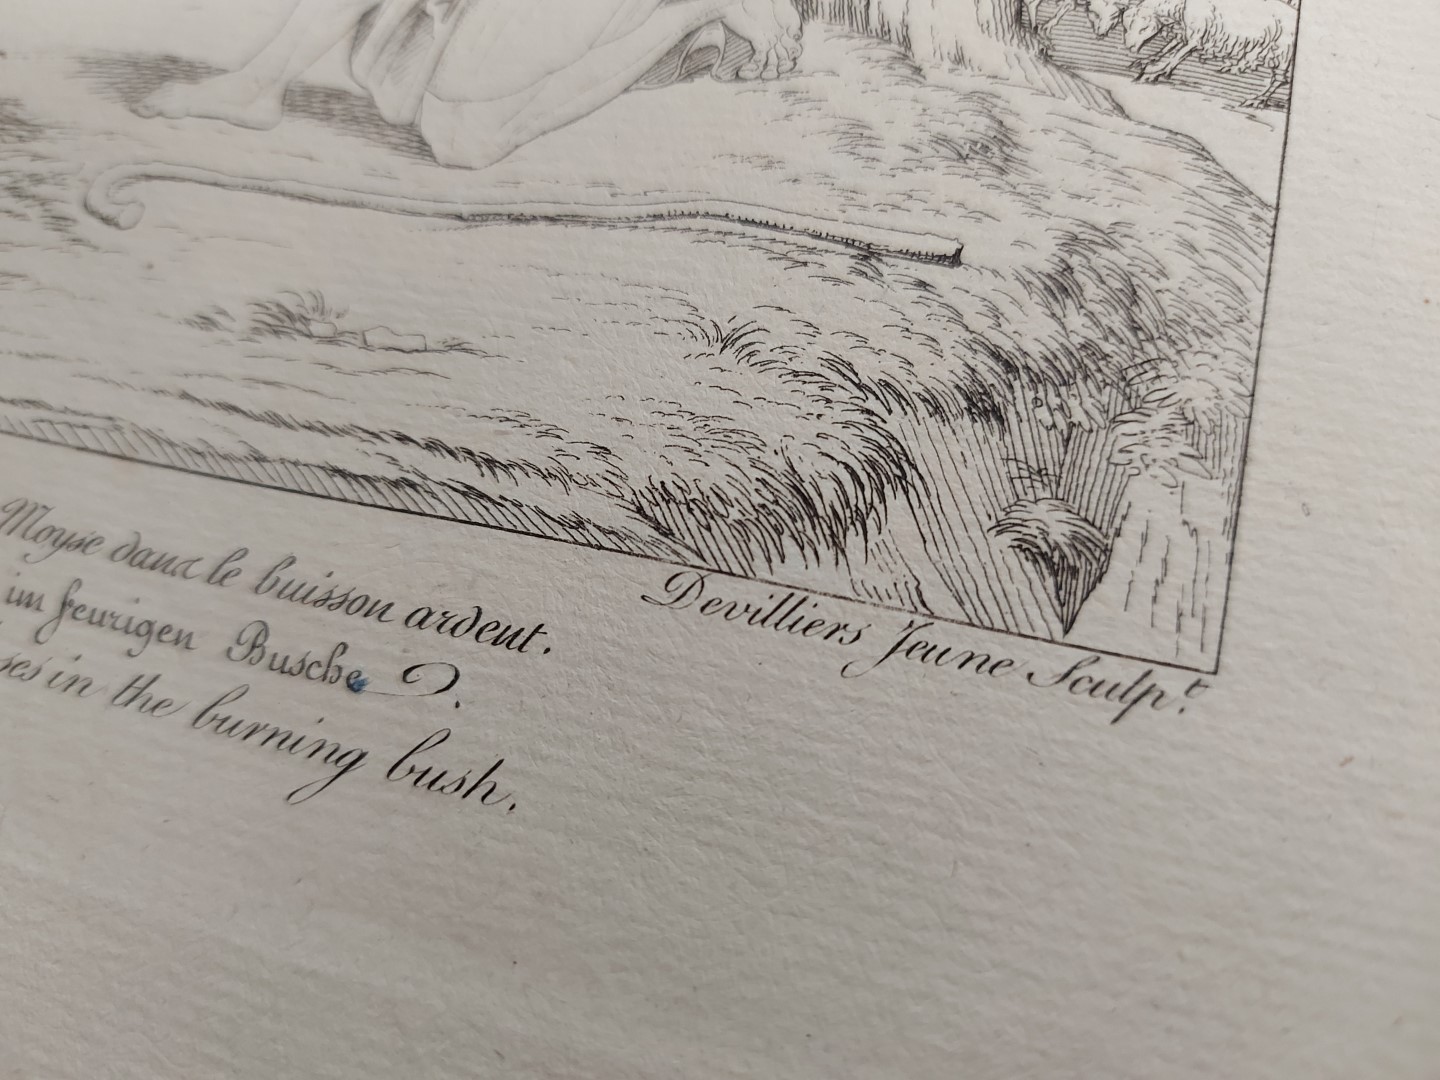 Devilliers Jeune Sculp.t
Moyse dans le buisson ardent.
im feurigen Busche.
ses in the burning bush.